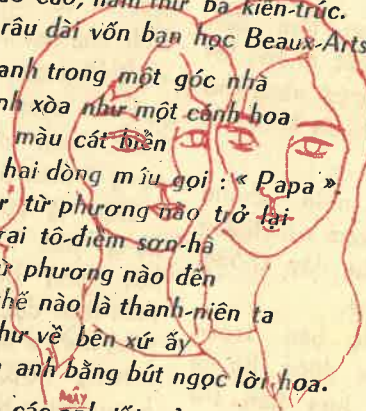 năm thứ ba kiến-trúc.
râu dài vốn bạn học Beaux-Arts
anh trong một góc nhà
xòa như một cánh hoa
màu cát biển
hai dòng m iu gọi : « Papa ».
từ phương nào trở lại
tô-điểm sơn-hà
phương nào đến
nào là thanh-niên ta
về bên xứ ấy
anh bằng bút ngọc lời hoa.
MÂY
các